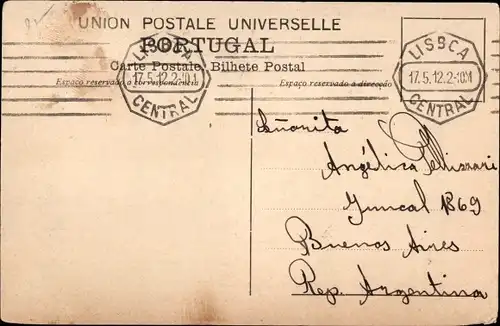 UNION POSTALE UNIVERSELLE
PORTUGAL
Carte Postale, Bilhete Postal
Espaço reservado a correspondencia
Espaço reservado a direcção
LISBOA
17.5.12.2-10M
CENTRAL
LISBOA
17.5.12.2-10M
CENTRAL
Señorita
Angélica
Juncal 1869
Buenos Aires
Rep. Argentina